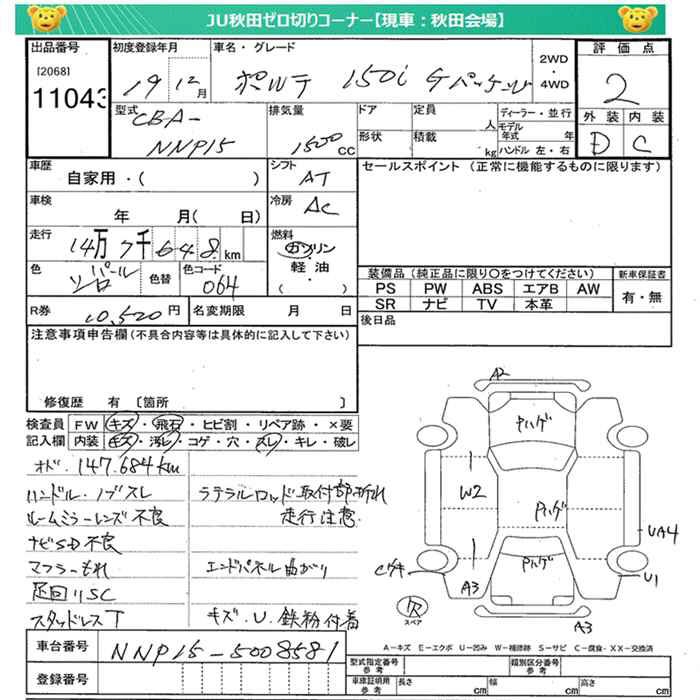 JU秋田ゼロ切りコーナー【現車：秋田会場】
出品番号 初度登録年月 車名・グレード 2WD・4WD 評価点
[2068]
11043 19 12月 ポルテ 150i Gパッケージ 2
型式 排気量 ドア 定員 人 ディーラー・並行 外装 内装
CBA-
NNP15 1500 CC 形状 積載 kg モデル年式 年 ハンドル 左・右 D C
車歴 シフト セールスポイント（正常に機能するものに限ります）
自家用・( ) AT
車検 冷房
年 月( 日) AC
走行 燃料
14万7千648km ガソリン・軽油・( )
色 色替 色コード 装備品（純正品に限り〇をつけてください） 新車保証書
パールシロ 064 PS PW ABS エアB AW 有・無
SR ナビ TV 本革
R券 10,520円 名変期限 月 日 後日品
注意事項申告欄(不具合内容等は具体的に記入して下さい)
修復歴 有 〔箇所 〕
検査員記入欄 FW キズ・飛石・ヒビ割・リペア跡・×要
内装 キズ・汚レ・コゲ・穴・スレ・キレ・破レ
オド.147.684km
ハンドル.ノブスレ ラテラルロッド取付部折れ
ルームミラーレンズ不良 走行注意
ナビSD不良
マフラーもれ エンドパネル曲がり
足回りSC
スタッドレスT キズ.U.鉄粉付着
A2
Pハゲ
W2
Pハゲ
UA4
Pハゲ
A3
U1
欠
スペア
A3
A－キズ E－エクボ U－凹み W－補修跡 S－サビ C－腐食・XX－交換済
車台番号 NNP15-5008581
登録番号
型式指定番号 参考 類別区分番号 参考
車庫証明用 参考 長さ cm 幅 cm 高さ cm